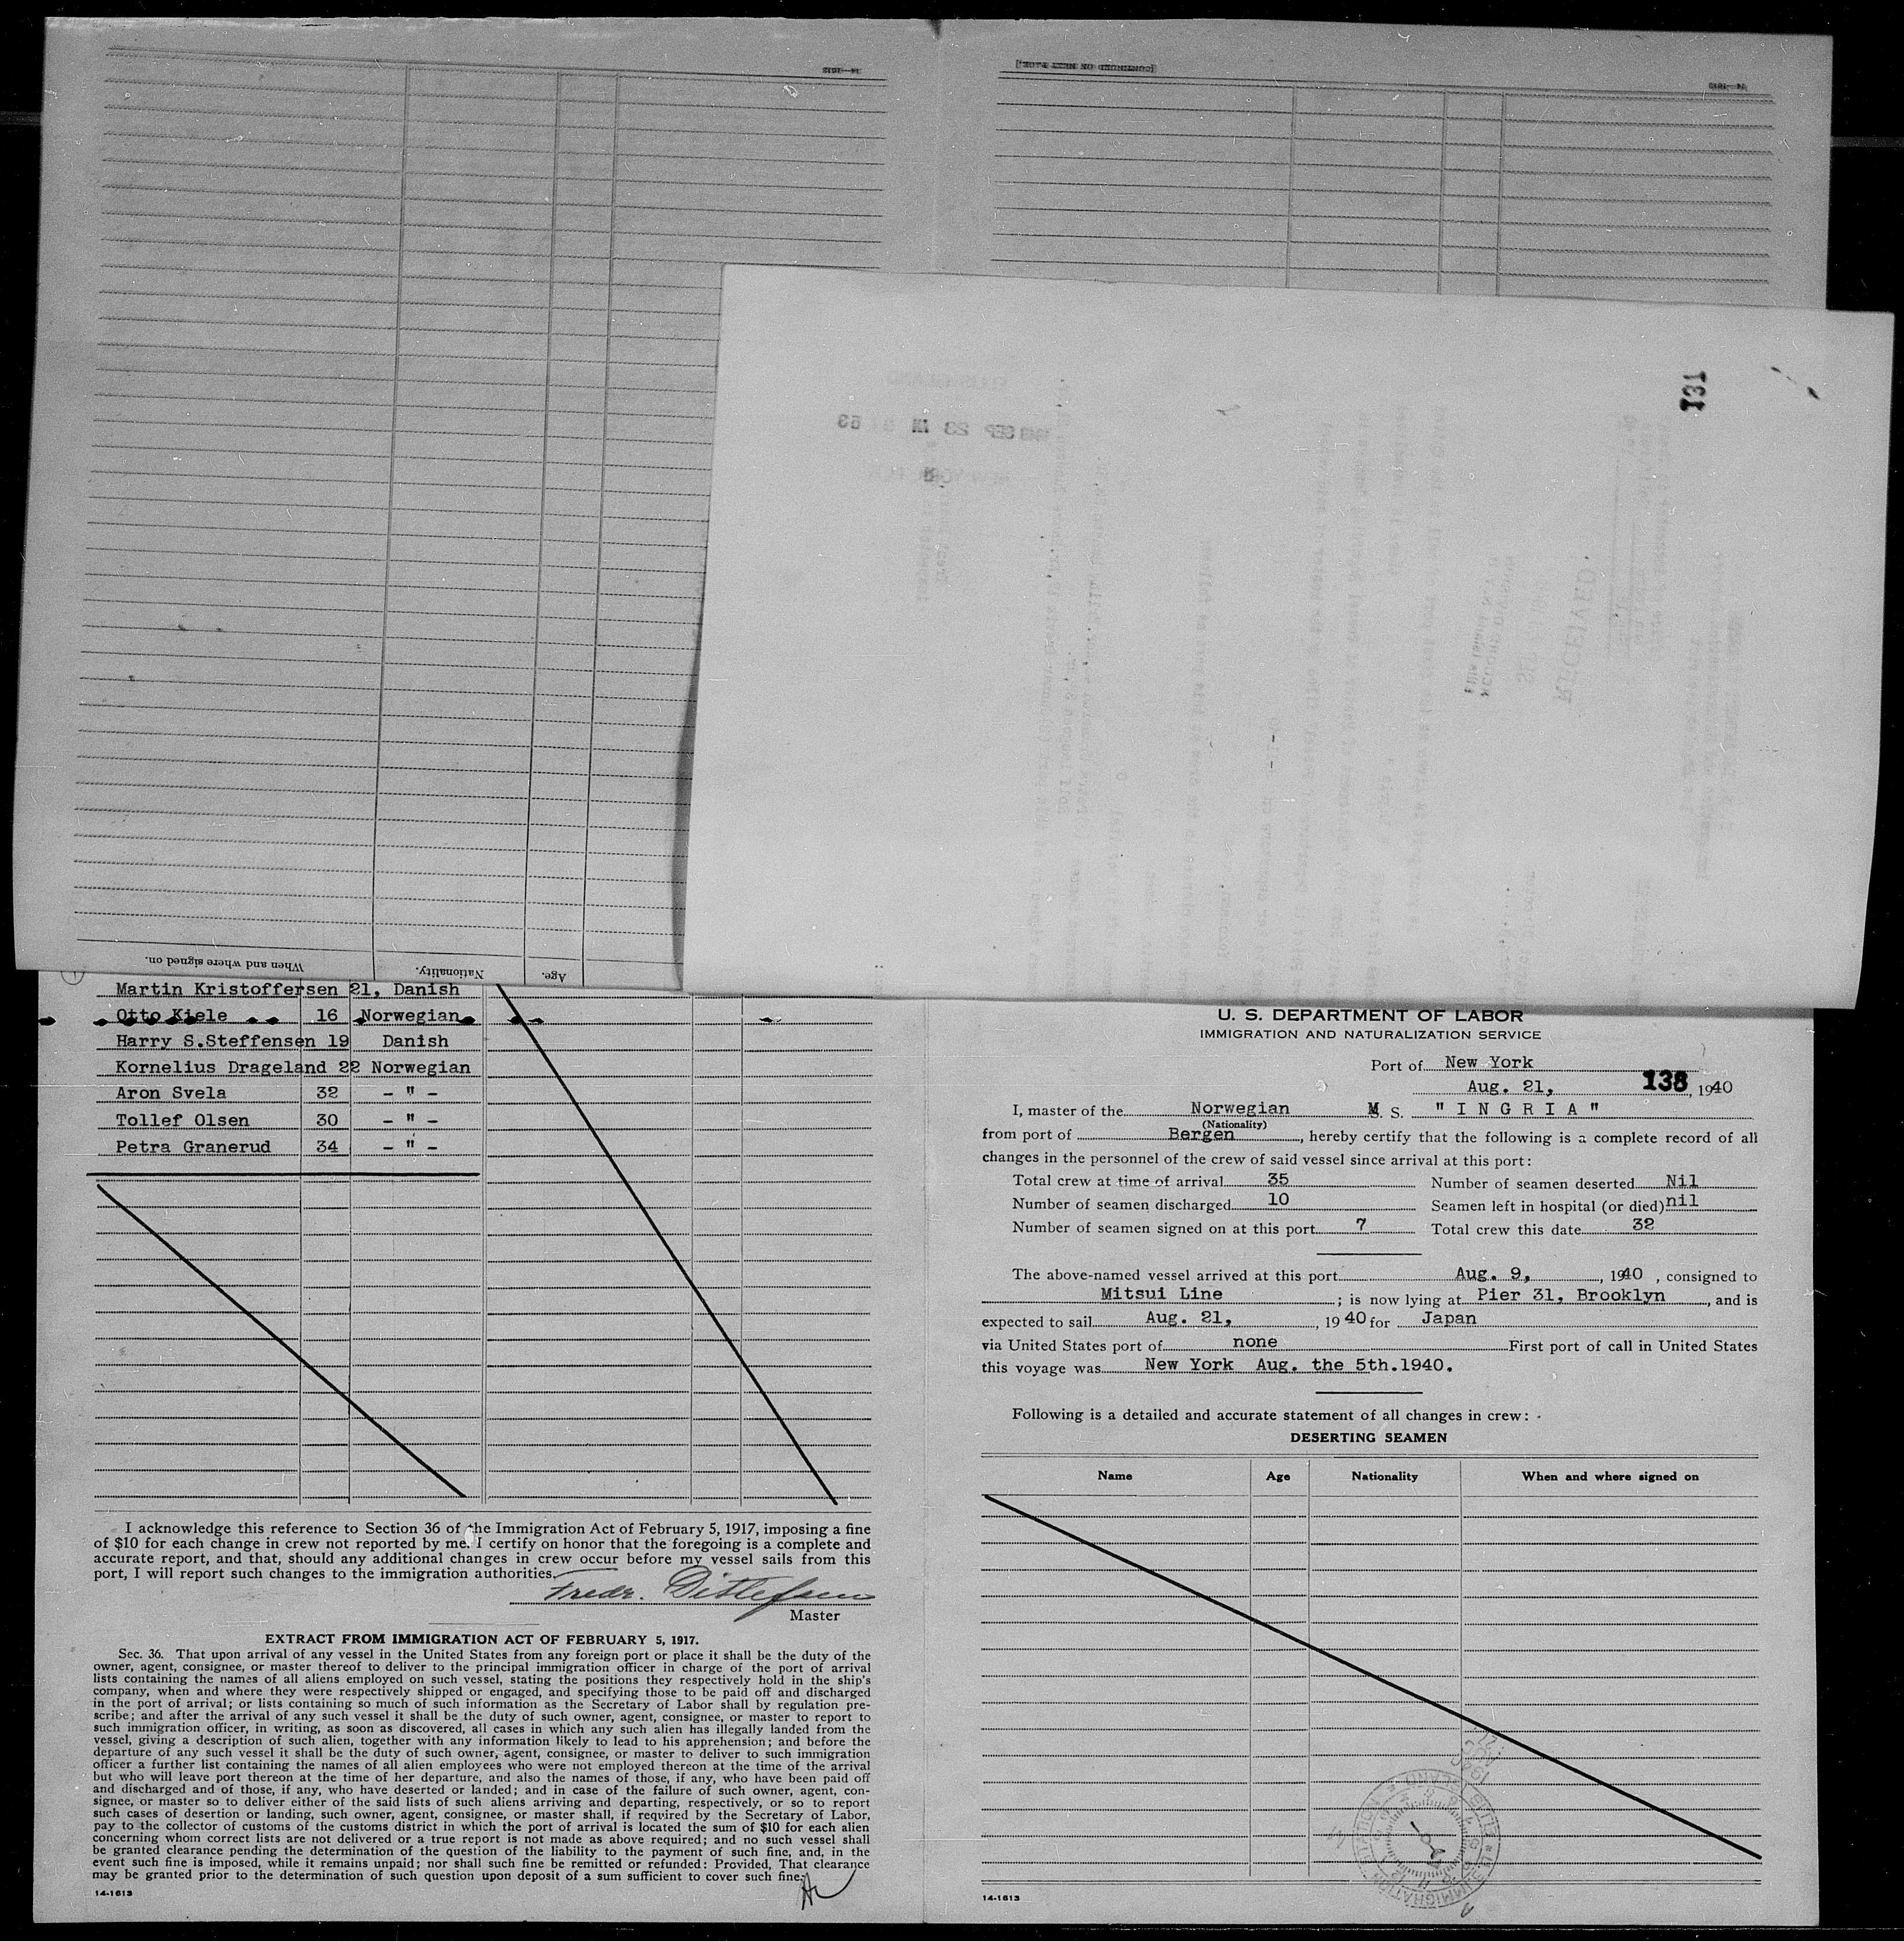 When and where signed on.
Nationality.
Age.
131
RECEIVED
Martin Kristoffersen 21, Danish
Otto Kiele 16 Norwegian
Harry S.Steffensen 19 Danish
Kornelius Drageland 22 Norwegian
Aron Svela 32 - " -
Tollef Olsen 30 - " -
Petra Granerud 34 - " -
I acknowledge this reference to Section 36 of the Immigration Act of February 5, 1917, imposing a fine
of $10 for each change in crew not reported by me. I certify on honor that the foregoing is a complete and
accurate report, and that, should any additional changes in crew occur before my vessel sails from this
port, I will report such changes to the immigration authorities.
Fredr. Ditlefsen
Master
EXTRACT FROM IMMIGRATION ACT OF FEBRUARY 5, 1917.
Sec. 36. That upon arrival of any vessel in the United States from any foreign port or place it shall be the duty of the
owner, agent, consignee, or master thereof to deliver to the principal immigration officer in charge of the port of arrival
lists containing the names of all aliens employed on such vessel, stating the positions they respectively hold in the ship's
company, when and where they were respectively shipped or engaged, and specifying those to be paid off and discharged
in the port of arrival; or lists containing so much of such information as the Secretary of Labor shall by regulation pre-
scribe; and after the arrival of any such vessel it shall be the duty of such owner, agent, consignee, or master to report to
such immigration officer, in writing, as soon as discovered, all cases in which any such alien has illegally landed from the
vessel, giving a description of such alien, together with any information likely to lead to his apprehension; and before the
departure of any such vessel it shall be the duty of such owner, agent, consignee, or master to deliver to such immigration
officer a further list containing the names of all alien employees who were not employed thereon at the time of the arrival
but who will leave port thereon at the time of her departure, and also the names of those, if any, who have been paid off
and discharged and of those, if any, who have deserted or landed; and in case of the failure of such owner, agent, con-
signee, or master so to deliver either of the said lists of such aliens arriving and departing, respectively, or so to report
such cases of desertion or landing, such owner, agent, consignee, or master shall, if required by the Secretary of Labor,
pay to the collector of customs of the customs district in which the port of arrival is located the sum of $10 for each alien
concerning whom correct lists are not delivered or a true report is not made as above required; and no such vessel shall
be granted clearance pending the determination of the question of the liability to the payment of such fine, and, in the
event such fine is imposed, while it remains unpaid; nor shall such fine be remitted or refunded: Provided, That clearance
may be granted prior to the determination of such question upon deposit of a sum sufficient to cover such fine.
14-1613
U. S. DEPARTMENT OF LABOR
IMMIGRATION AND NATURALIZATION SERVICE
Port of New York
Aug. 21, 138, 1940
I, master of the Norwegian M. S. "I N G R I A"
(Nationality)
from port of Bergen, hereby certify that the following is a complete record of all
changes in the personnel of the crew of said vessel since arrival at this port:
Total crew at time of arrival 35 Number of seamen deserted Nil
Number of seamen discharged 10 Seamen left in hospital (or died) nil
Number of seamen signed on at this port 7 Total crew this date 32
The above-named vessel arrived at this port Aug. 9, , 1940 , consigned to
Mitsui Line ; is now lying at Pier 31, Brooklyn, and is
expected to sail Aug. 21, , 1940 for Japan
via United States port of none First port of call in United States
this voyage was New York Aug. the 5th.1940.
Following is a detailed and accurate statement of all changes in crew:
DESERTING SEAMEN
Name Age Nationality When and where signed on
14-1613